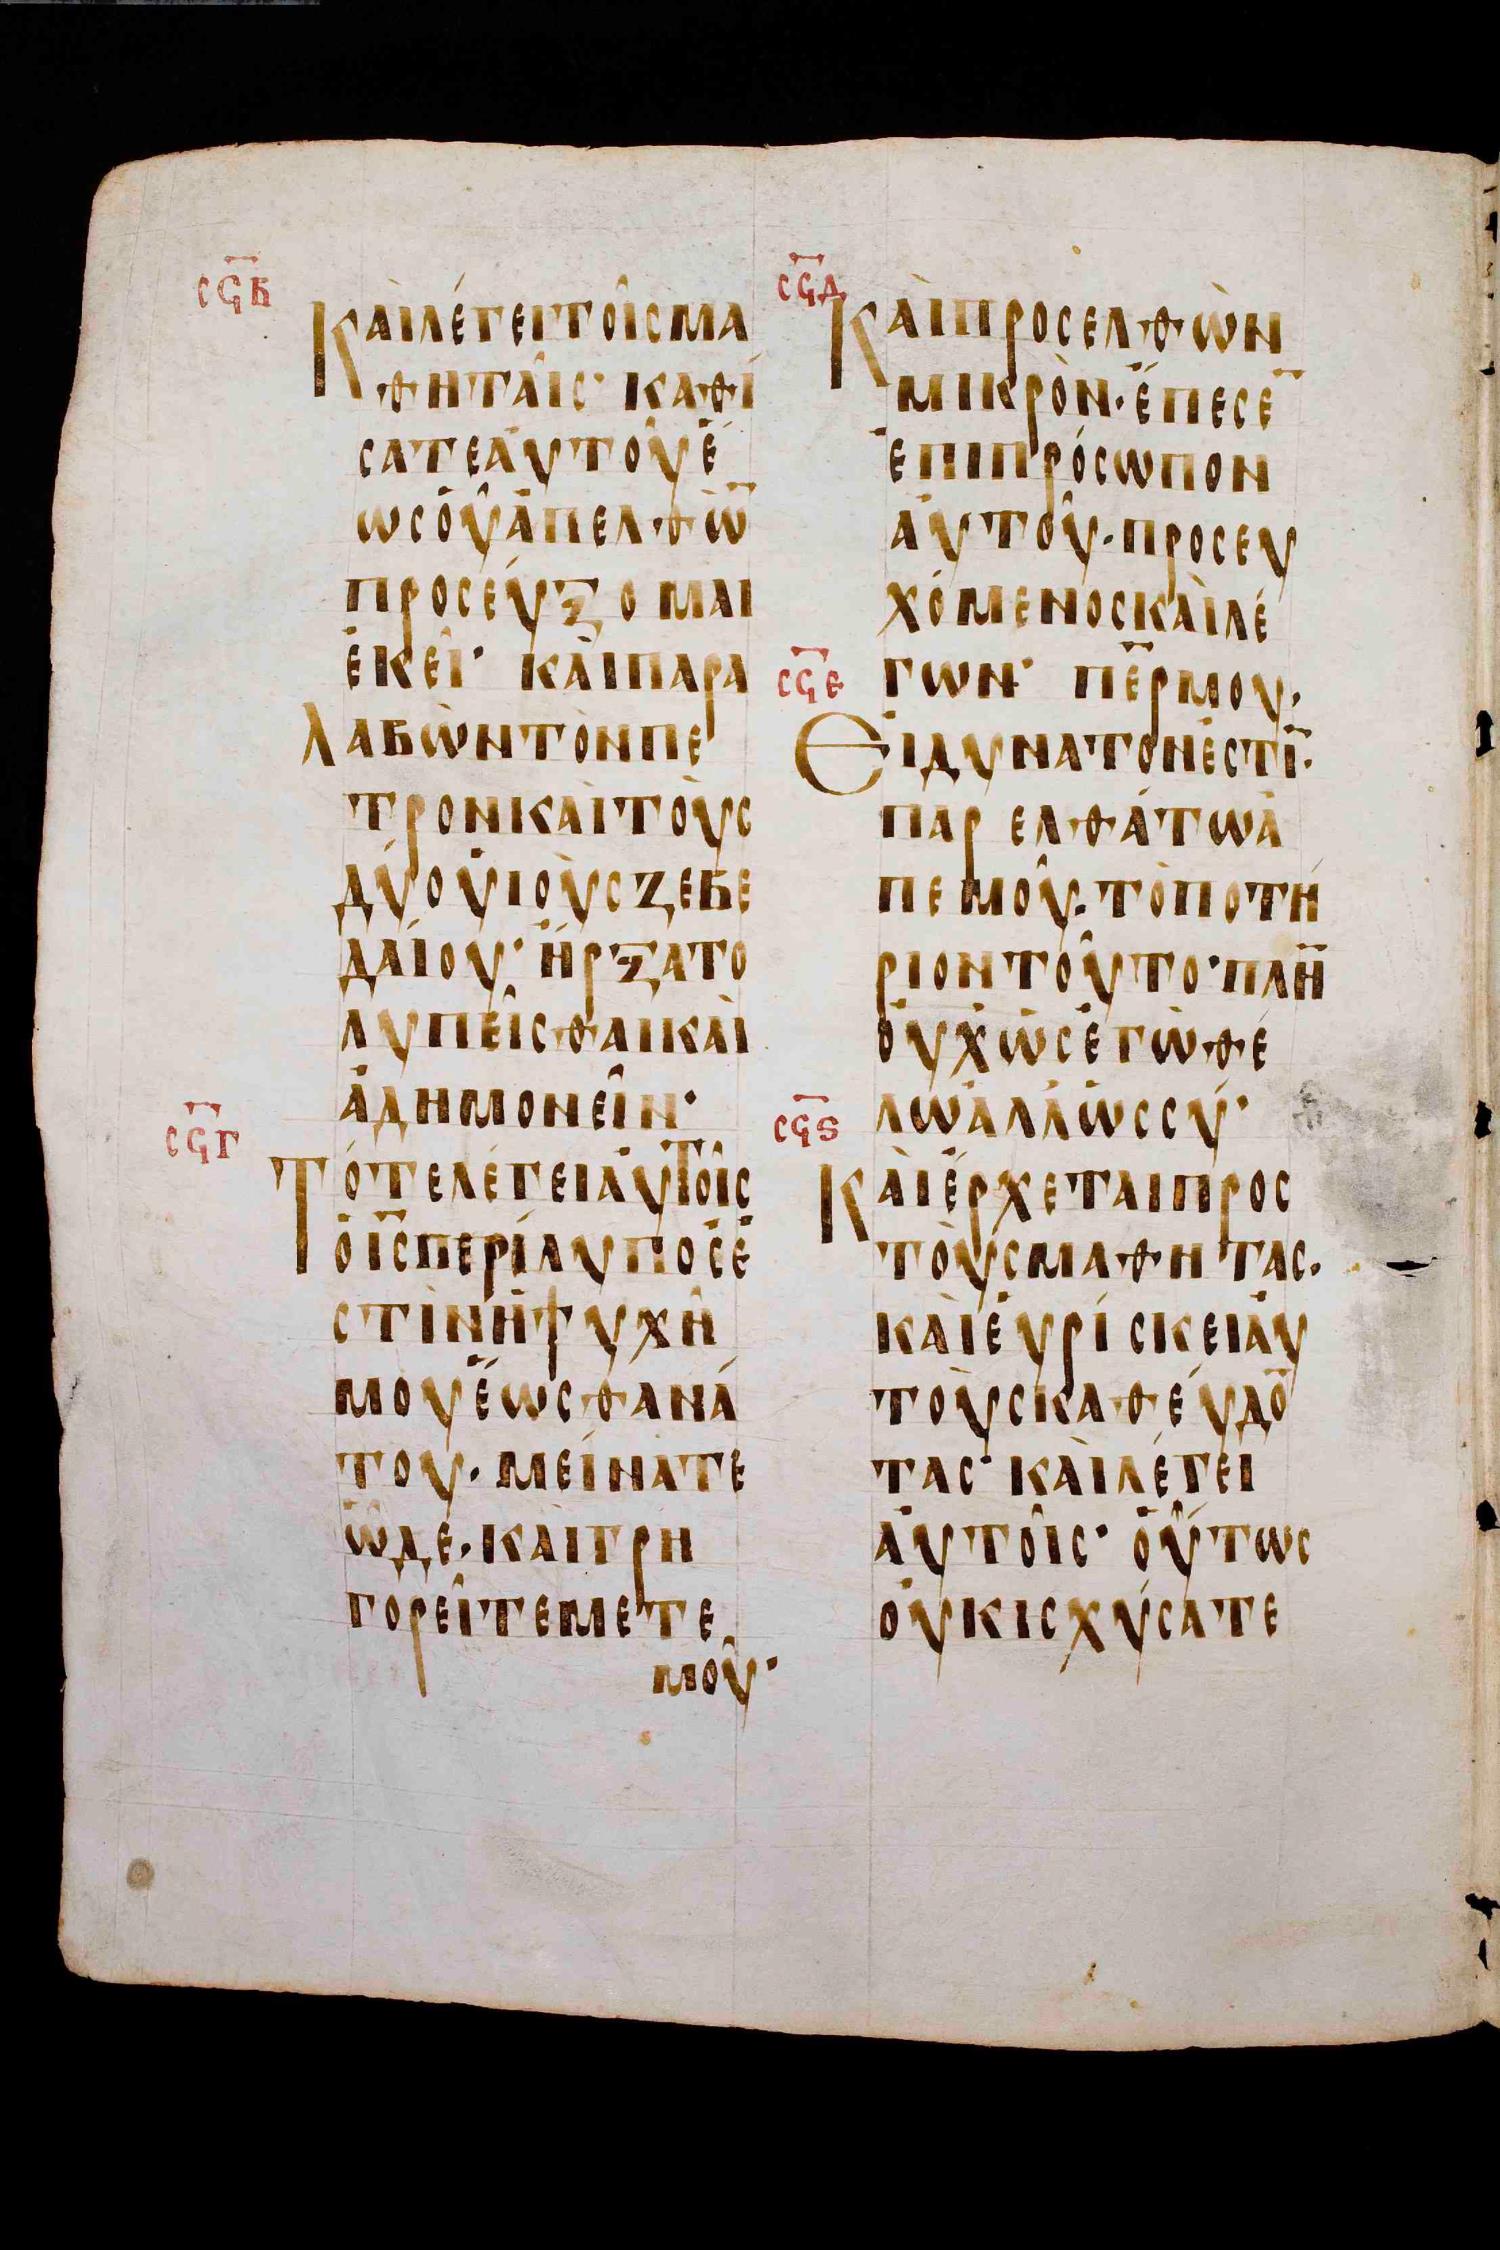 σϟβ
Κὰιλέγειτοῖσμα
θηταῖς· καθί
σατεἀυτοῦἕ
ωσὁῦἀπελθὼ̅
προσέυξομαι
ἐκεῖ· κὰιπαρα
λαβὼντὸνπε
τρονκὰιτὸυς
δύουἱὸυσζεβε
δαίου· ἤρξατο
λυπεῖσθαικὰι
ἀδημονεῖν·
σϟγ
Τότελέγειἀυτοῖς
ὁι̅σ̅περίλυποσἐ
στὶνἡψυχῆ
μουἕωσθανά
του· μείνατε
ὧδε· κὰιγρη
γορεῖτεμετε
μοῦ·
σϟδ
Κὰιπροσελθὼν
μικρὸν· ἔπεσε̅
ἐπιπρόσωπον
ἀυτοῦ· προσευ
χόμενοσκὰιλέ
γων· πε̅ρμου·
σϟε
Ειδυνατονἐστι̅·
παρελθάτωἀ
πεμοῦ· τὸποτή
ριοντοῦτο· πλὴ̅
ὀυχὡσἐγὼθέ
λωἀλλὡσσύ·
σϟϛ
Κὰιἔρχεταιπρος
τὸυσμαθητας·
κὰιἑυρίσκειἀυ
τὸυσκαθέυδο̅
τας· κὰιλέγει
ἀυτοῖς· ὁύτως
ὀυκισχύσατε